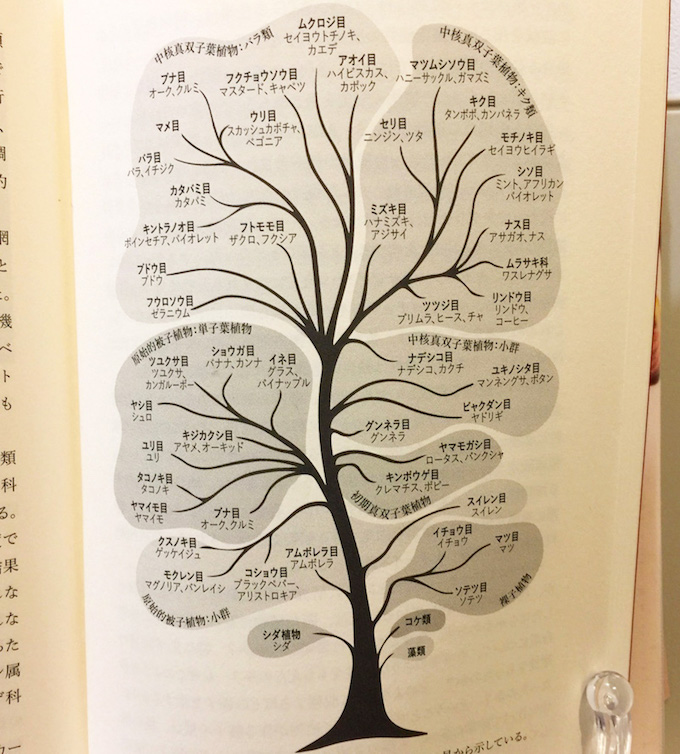 中核真双子葉植物：バラ類
ムクロジ目
セイヨウトチノキ、
カエデ
アオイ目
ハイビスカス、
カポック
ブナ目
オーク、クルミ
フクチョウソウ目
マスタード、キャベツ
マメ目
ウリ目
スカッシュカボチャ、
ベゴニア
バラ目
バラ、イチジク
カタバミ目
カタバミ
キントラノオ目
ポインセチア、バイオレット
フトモモ目
ザクロ、フクシア
ブドウ目
ブドウ
フウロソウ目
ゼラニウム
中核真双子葉植物：キク類
マツムシソウ目
ハニーサックル、ガマズミ
キク目
タンポポ、カンパネラ
セリ目
ニンジン、ツタ
モチノキ目
セイヨウヒイラギ
シソ目
ミント、アフリカン
バイオレット
ミズキ目
ハナミズキ、
アジサイ
ナス目
アサガオ、ナス
ムラサキ科
ワスレナグサ
ツツジ目
プリムラ、ヒース、チャ
リンドウ目
リンドウ、
コーヒー
原始的被子植物：単子葉植物
ツユクサ目
ツユクサ、
カンガルーポー
ショウガ目
バナナ、カンナ
イネ目
グラス、
パイナップル
ヤシ目
シュロ
キジカクシ目
アヤメ、オーキッド
ユリ目
ユリ
タコノキ目
タコノキ
ヤマイモ目
ヤマイモ
ブナ目
オーク、クルミ
中核真双子葉植物：小群
ナデシコ目
ナデシコ、カクチ
ユキノシタ目
マンネングサ、ボタン
ビャクダン目
ヤドリギ
グンネラ目
グンネラ
ヤマモガシ目
ロータス、バンクシャ
キンポウゲ目
クレマチス、ポピー
初期真双子葉植物
スイレン目
スイレン
クスノキ目
ゲッケイジュ
アムボレラ目
アムボレラ
モクレン目
マグノリア、バンレイシ
コショウ目
ブラックペパー、
アリストロキア
原始的被子植物：小群
イチョウ目
イチョウ
マツ目
マツ
ソテツ目
ソテツ
裸子植物
シダ植物
シダ
コケ類
藻類
から示している。